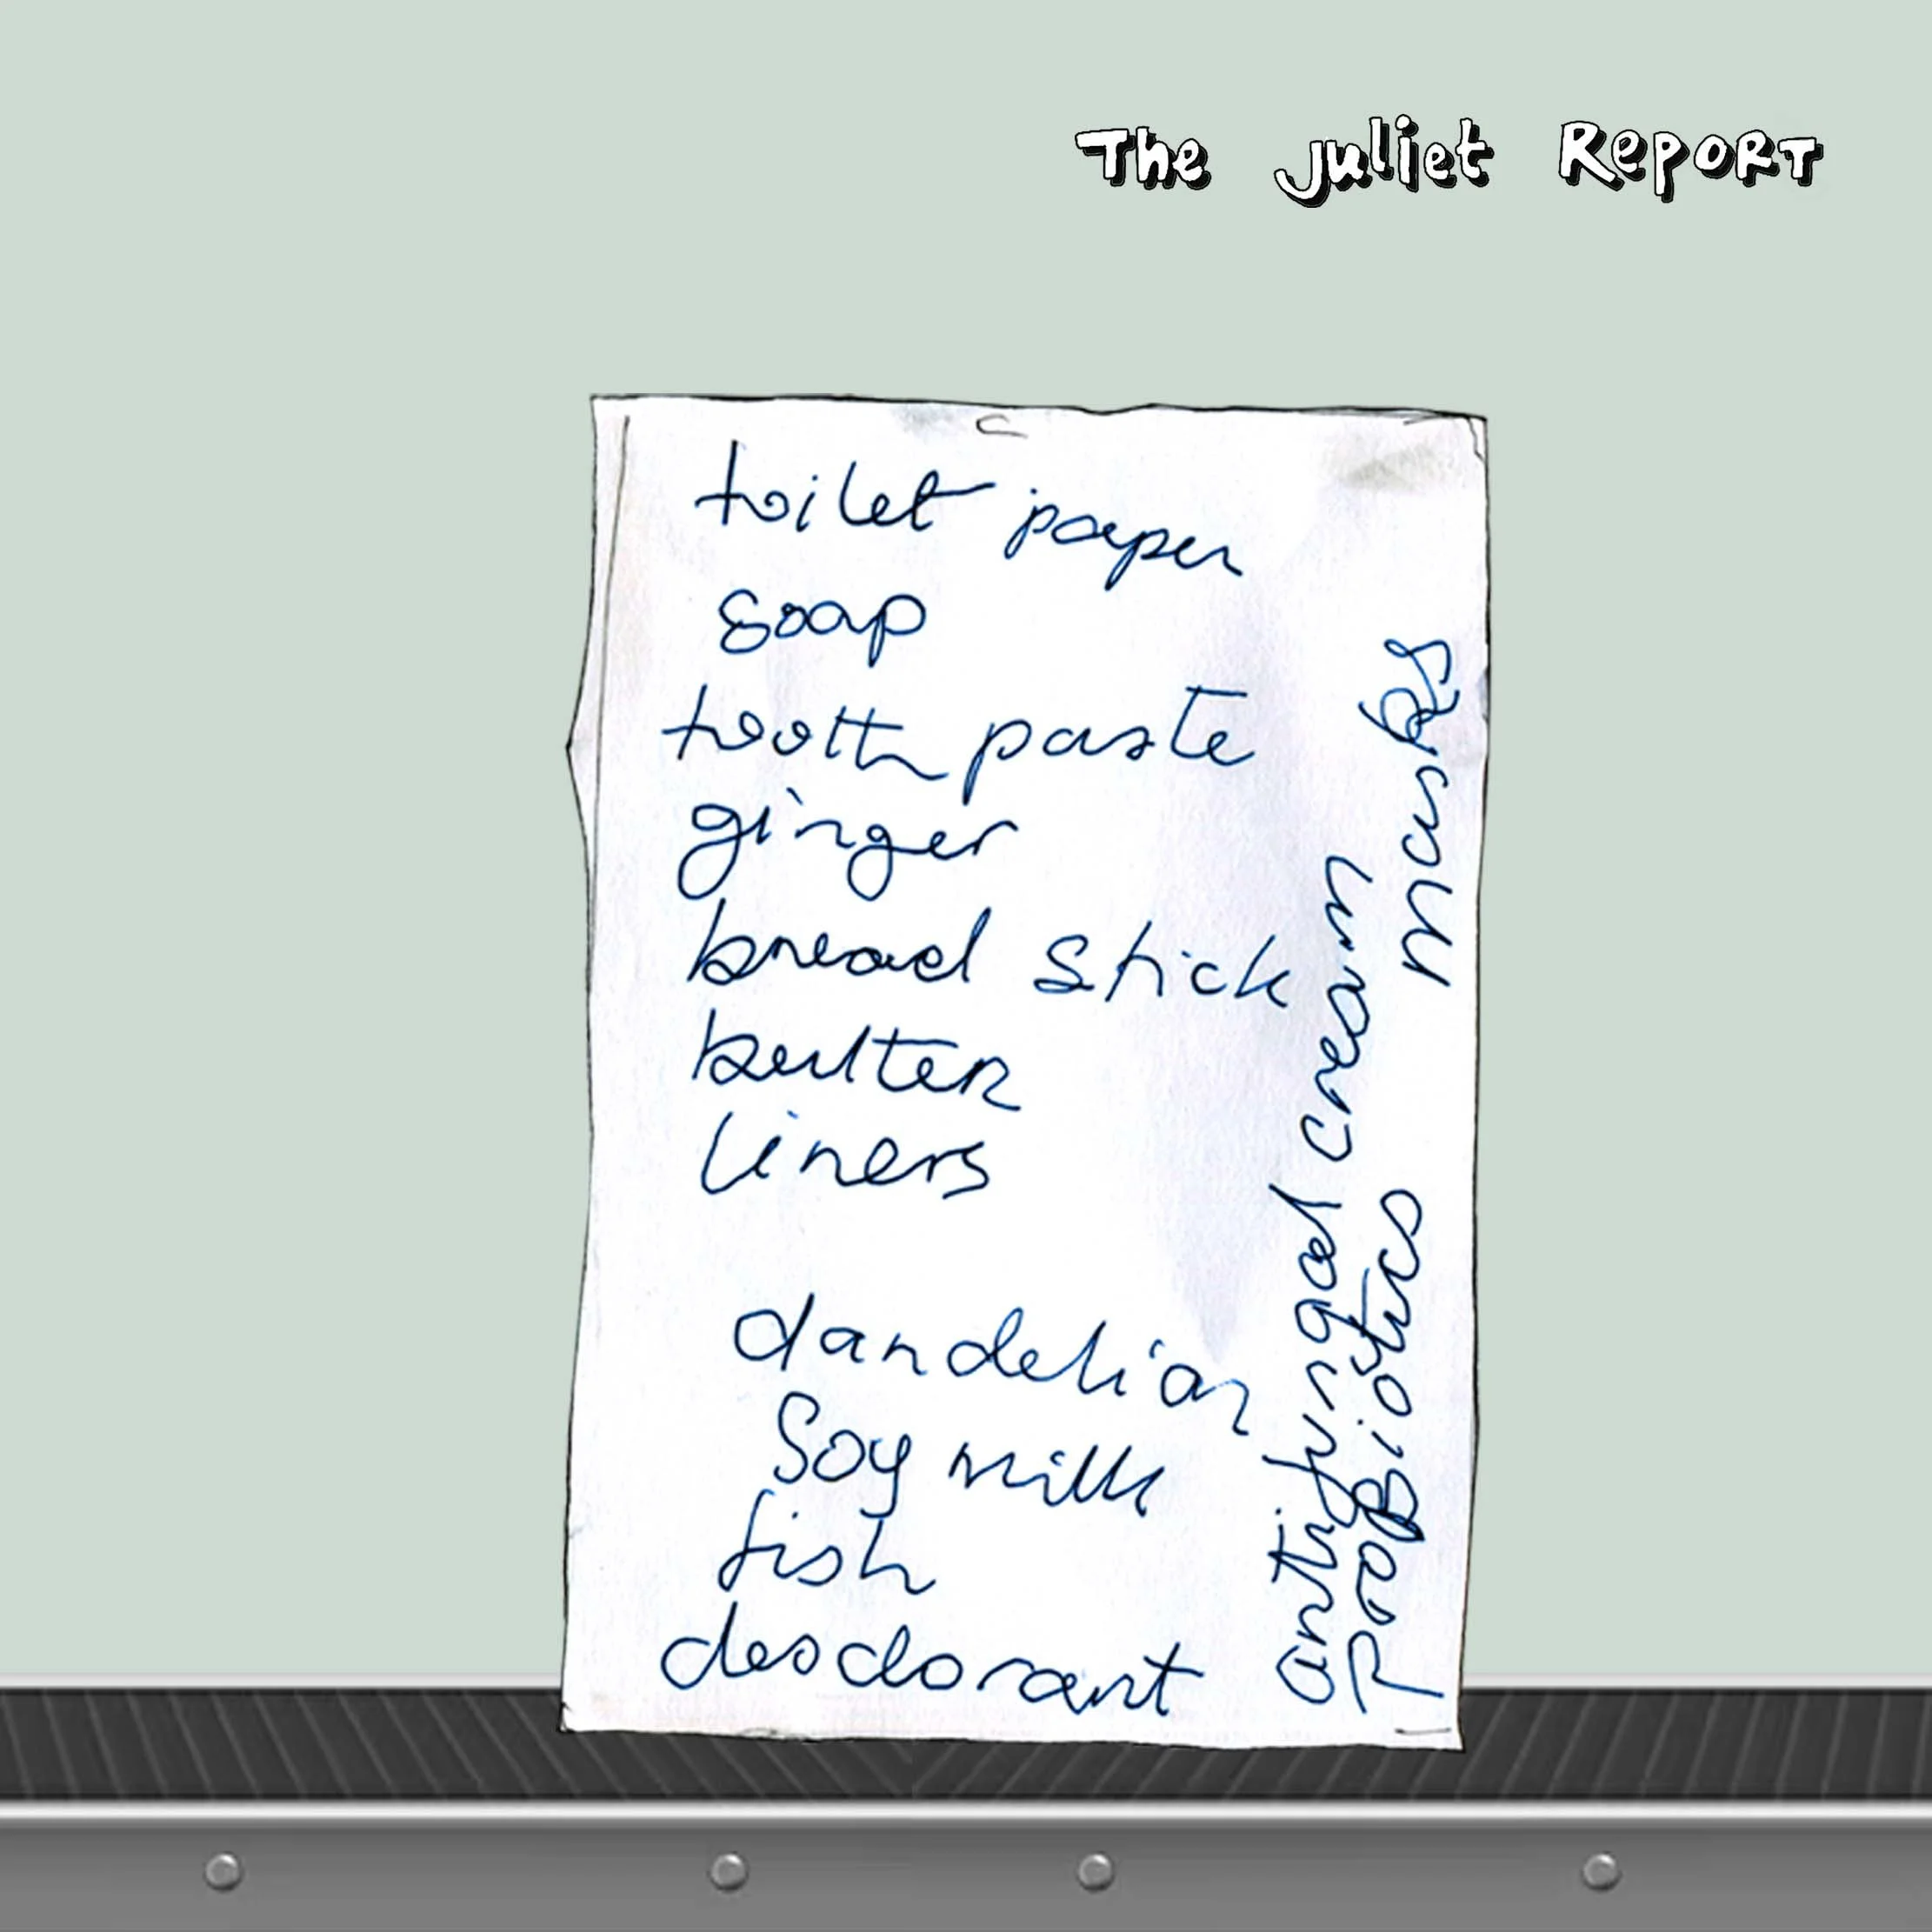 The Juliet Report
toilet paper
soap
tooth paste
ginger
bread stick
butter
liners
dandelion
Soy milk
fish
desdorant
antifungal cream
Probiotics
masks